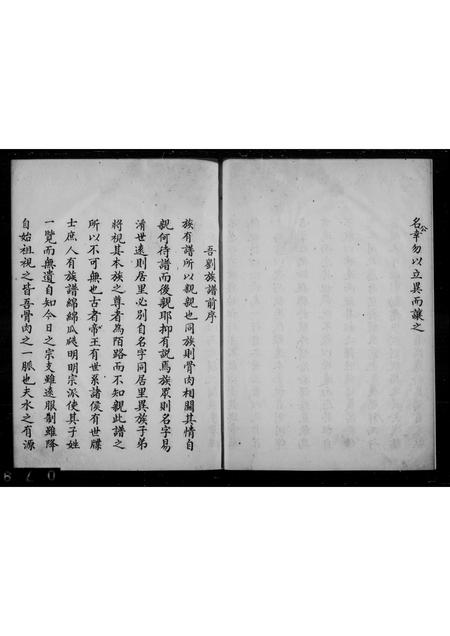 名公幸勿以立異而讓之
吾劉族譜前序
族有譜所以親親也同族則骨肉相關其情自
親何待譜而後親耶抑有說焉族眾則名字易
淆世遠則居里必別自名字同居里異族子弟
將視其本族之尊者為陌路而不知親此譜之
所以不可無也古者帝王有世系諸侯有世牒
士庶人有族譜綿綿瓜瓞明明宗派使其子姓
一覽而無遺自知今日之宗支雖遠服制雖降
自始祖視之皆吾骨肉之一脈也夫水之有源